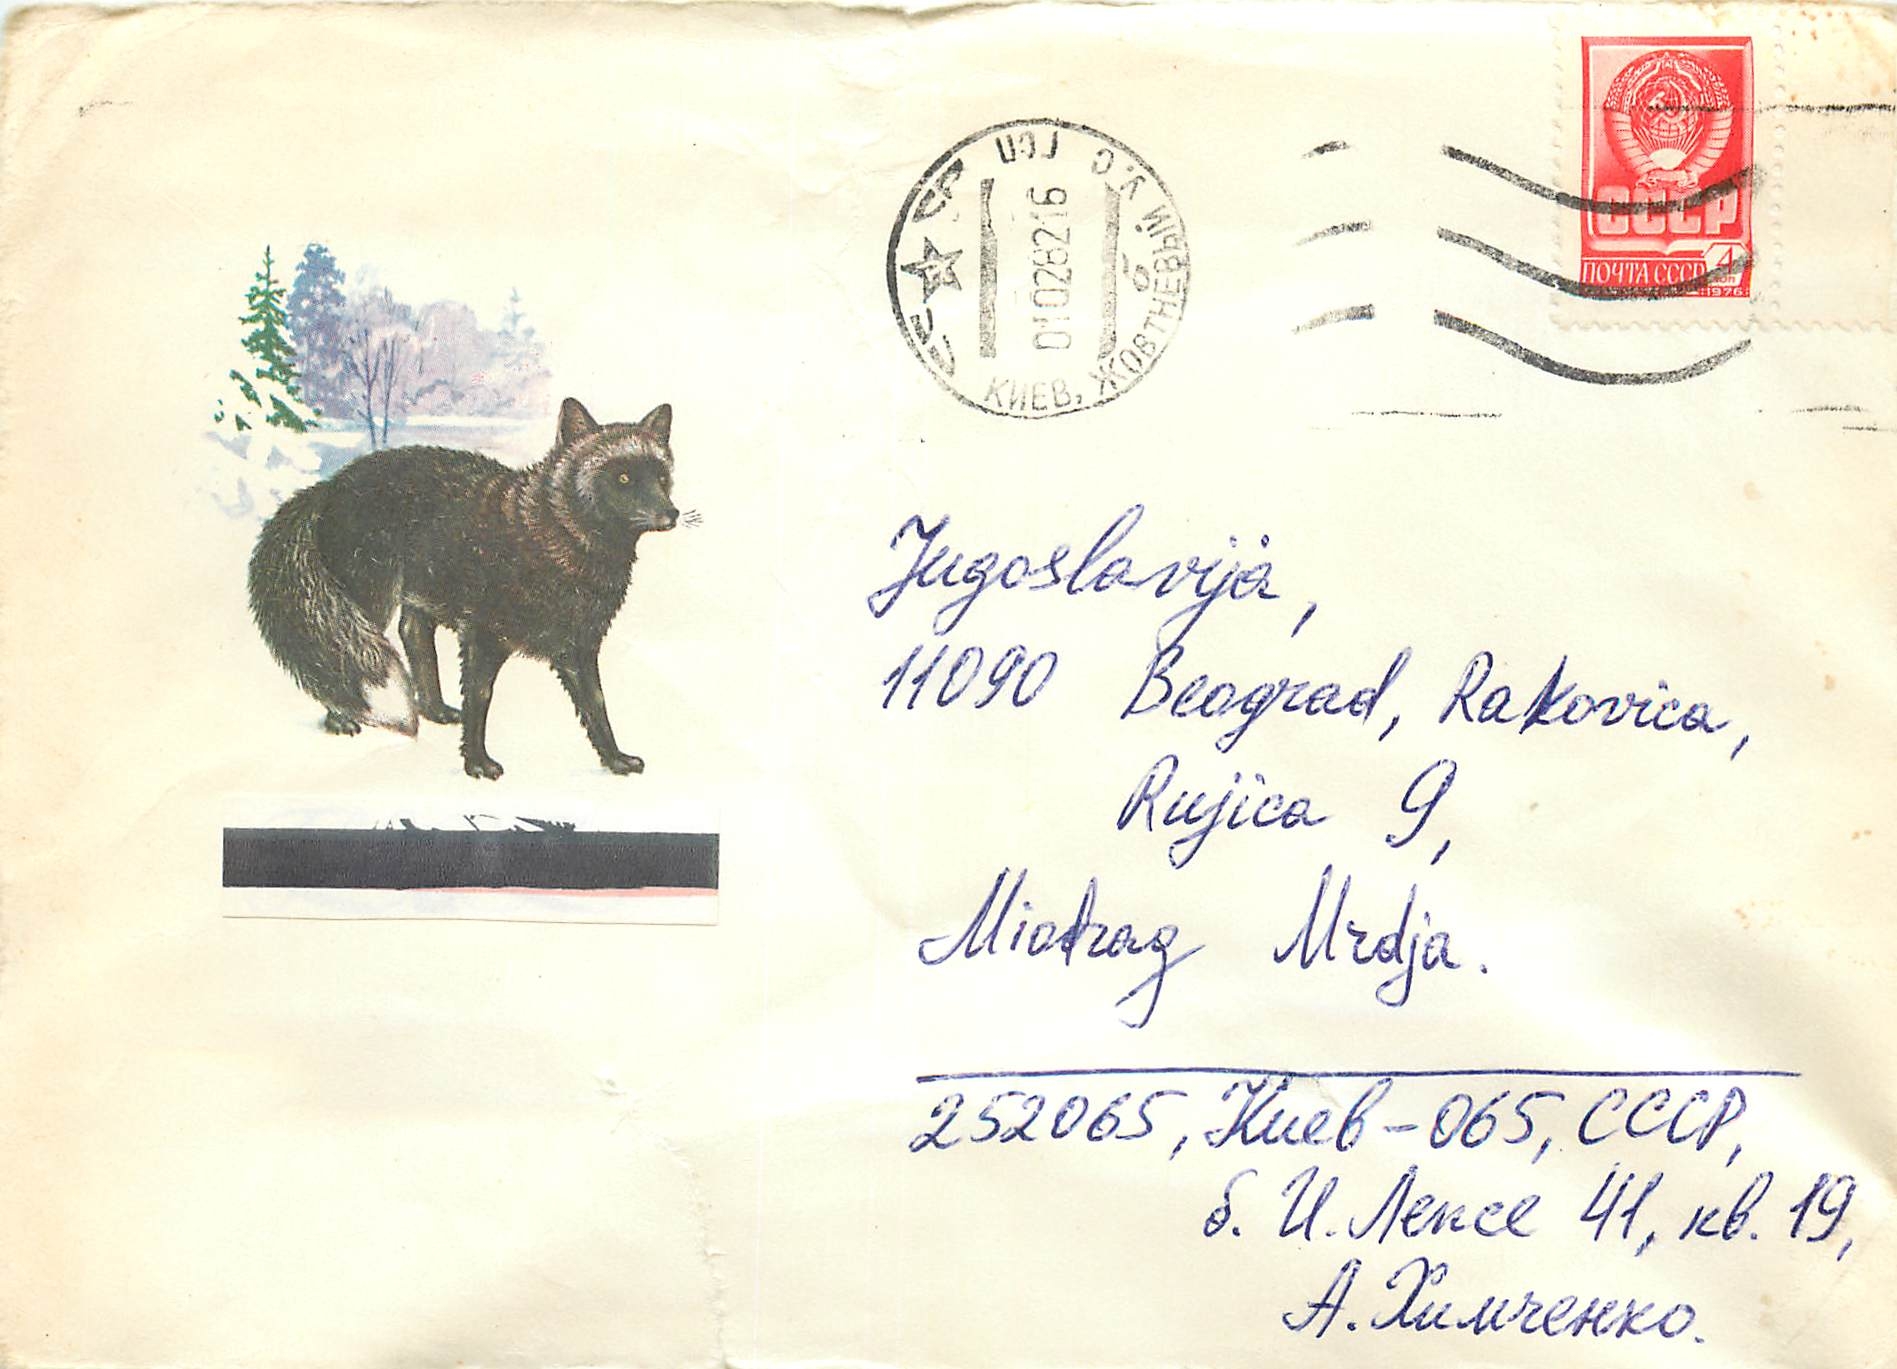 СССР
ПОЧТА СССР 4 коп
1976
КИЕВ, ЖОВТНЕВЫЙ У.С
01028216
Jugoslavija,
11090 Beograd, Rakovica,
Rujica 9,
Miodrag Mrdja.
252065, Киев-065, СССР,
б. И. Лепсе 41, кв. 19,
А. Химченко.